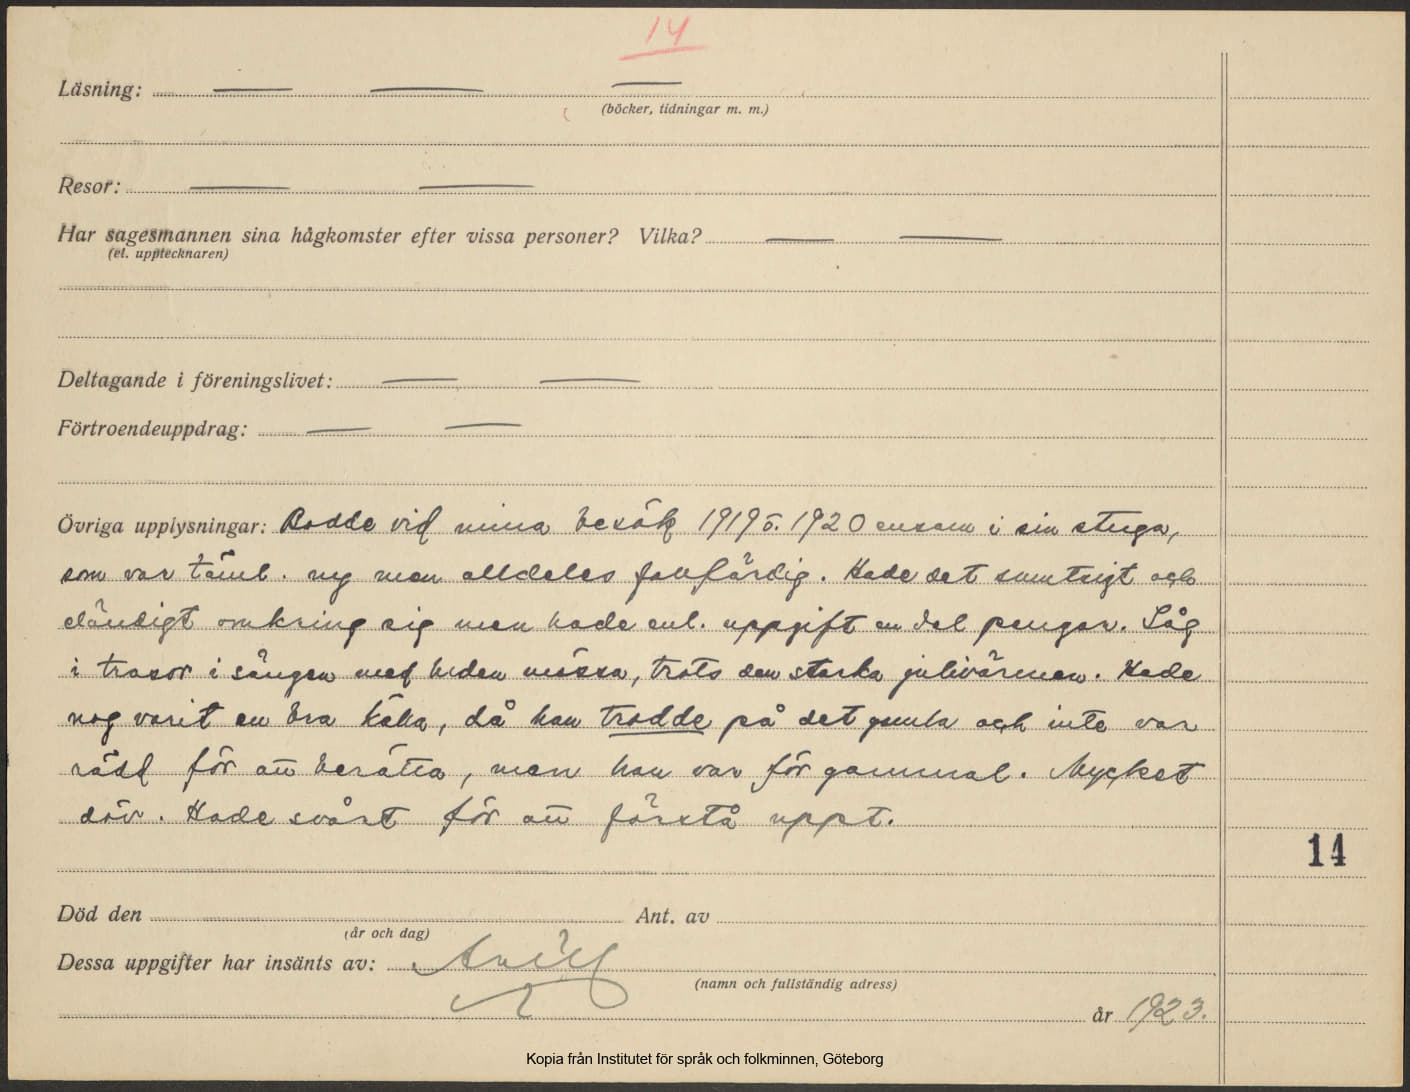 14
Läsning: — — —
(böcker, tidningar m. m.)
Resor: — —
Har sagesmannen sina hågkomster efter vissa personer? Vilka? — —
(el. upptecknaren)
Deltagande i föreningslivet: — —
Förtroendeuppdrag: — —
Övriga upplysningar: Bodde vid mina besök 1919 o. 1920 ensam i sin stuga,
som var täml. ny men alldeles fallfärdig. Hade det smutsigt och
eländigt omkring sig men hade enl. uppgift en del pengar. Låg
i trasor i sängen med luden mössa, trots den starka julivärmen. Hade
nog varit en bra källa, då han trodde på det gamla och inte var
rädd för att berätta, men han var för gammal. Mycket
döv. Hade svårt för att förstå uppt.
14
Död den Ant. av
(år och dag)
Dessa uppgifter har insänts av:
(namn och fullständig adress)
år 1923.
Kopia från Institutet för språk och folkminnen, Göteborg